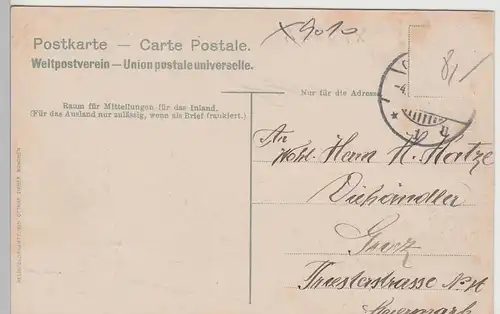 x9010
Postkarte — Carte Postale.
Weltpostverein — Union postale universelle.
81/
Nur für die Adresse
Raum für Mitteilungen für das Inland.
(Für das Ausland nur zulässig, wenn als Brief frankiert.)
An
Wohl. Herrn H. Matze
Viehändler
Graz
Triesterstrasse No